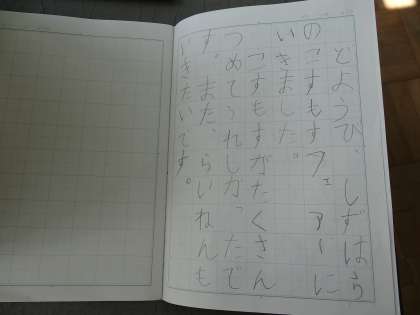 どようび、しずはら
のこすもすフェアーに
いきました。
こすもすがたくさん
つめてうれしかったで
す。また、らいねんも
いきたいです。